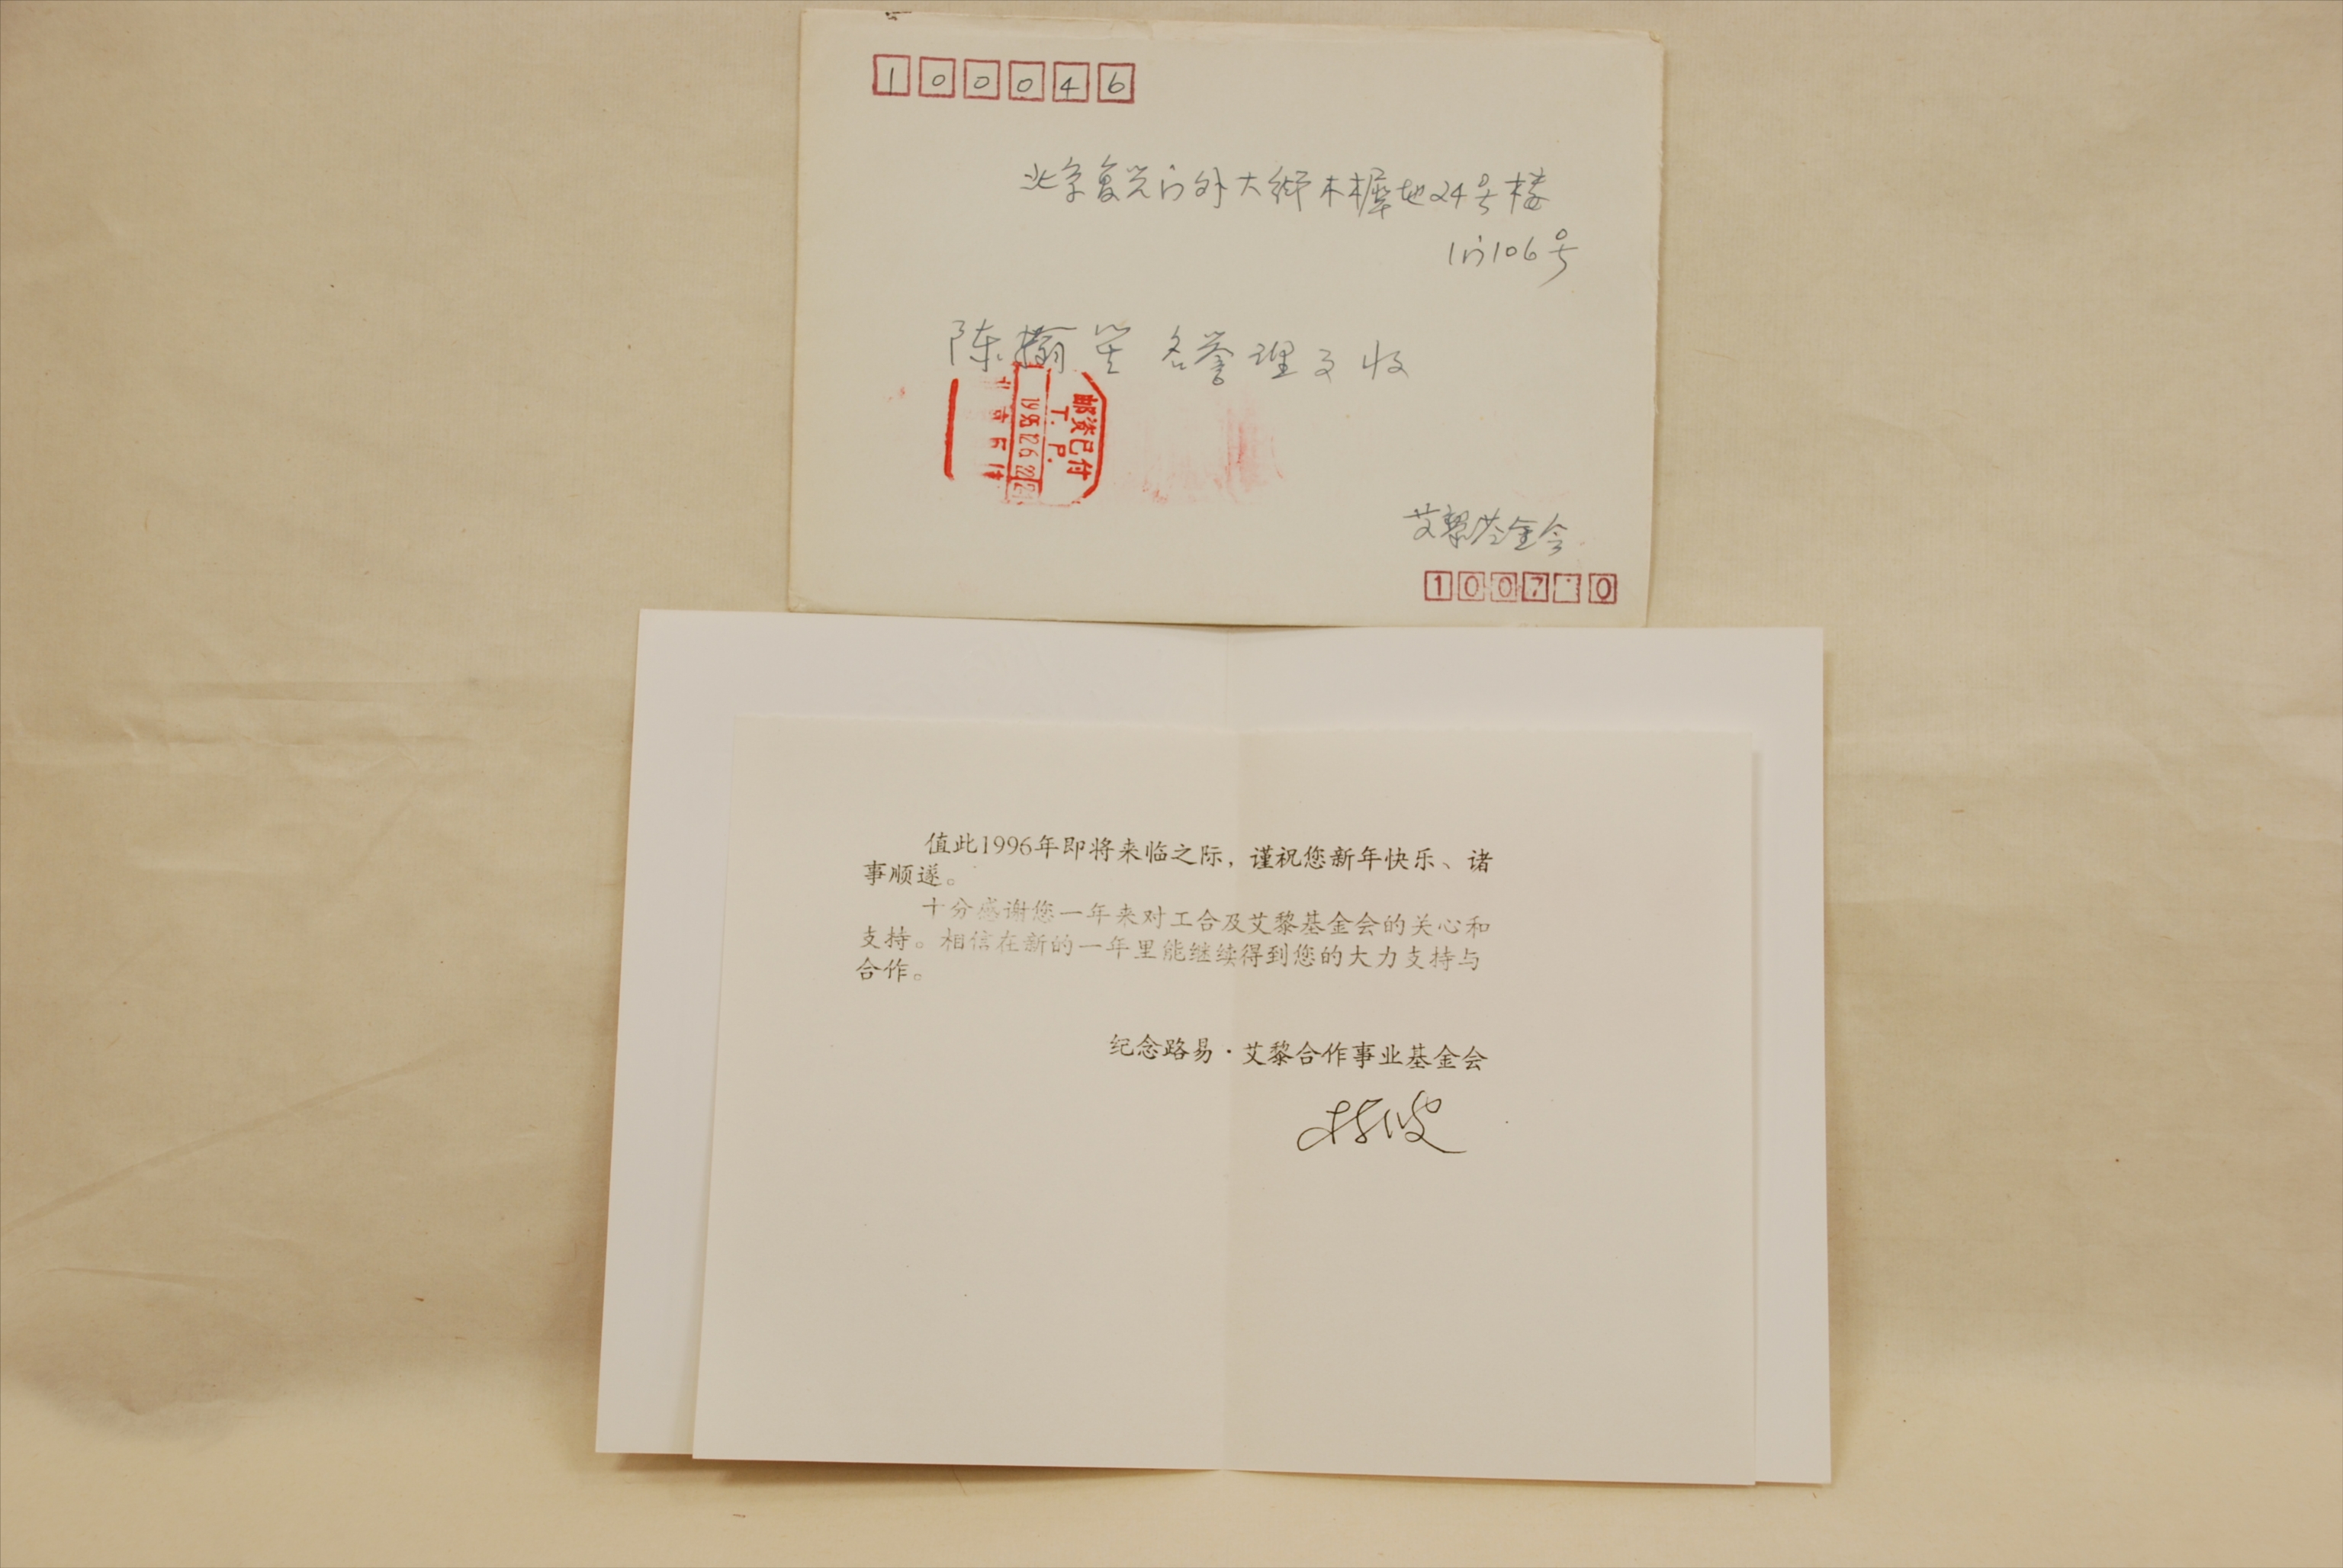 100046
北京复兴门外大街木樨地24号楼
1门106号
陈翰笙 名誉理事 收
邮资已付
T. P.
艾黎基金会
1007 0
值此1996年即将来临之际，谨祝您新年快乐、诸
事顺遂。
十分感谢您一年来对工合及艾黎基金会的关心和
支持。相信在新的一年里能继续得到您的大力支持与
合作。
纪念路易·艾黎合作事业基金会